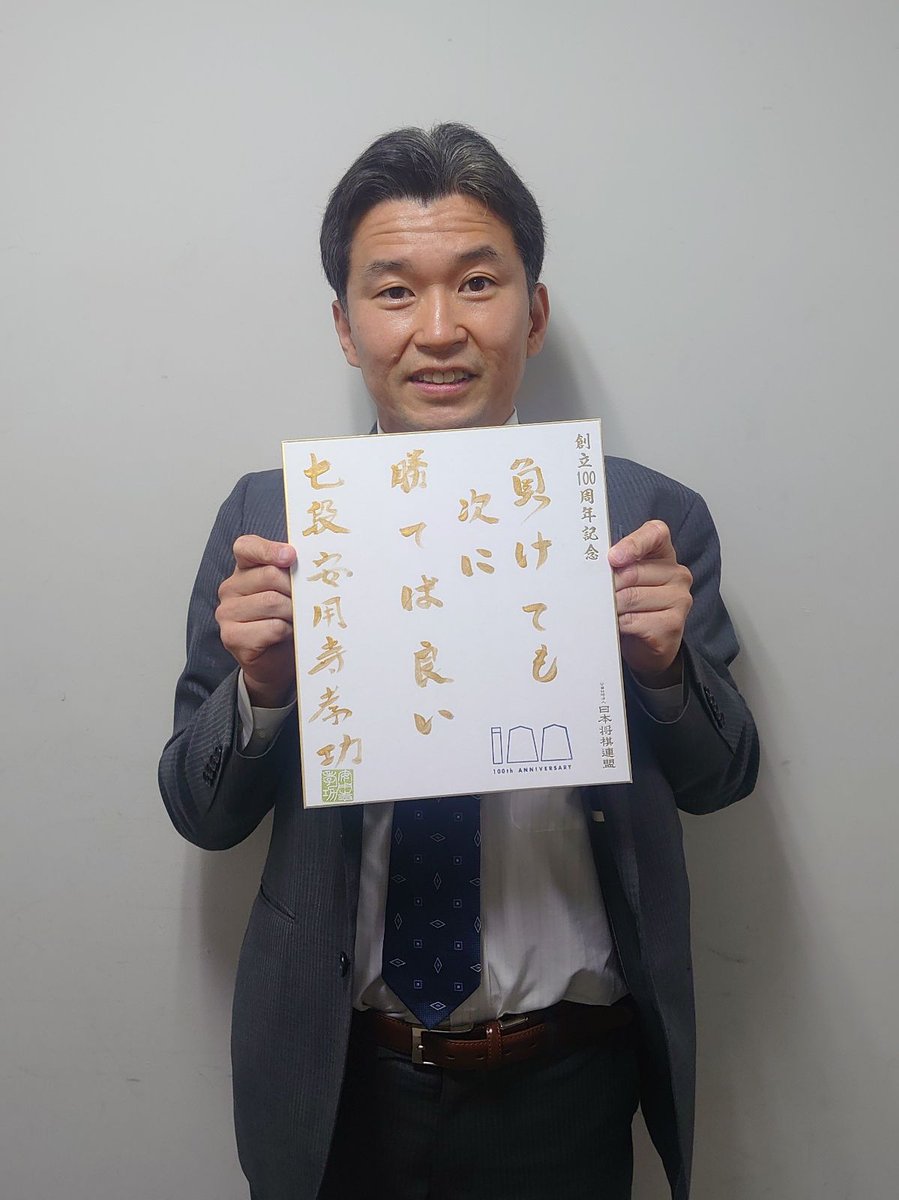 創立100周年記念
負けても
次に
勝てば良い
七段 安用寺孝功
公益社団法人 日本将棋連盟
100
100th ANNIVERSARY